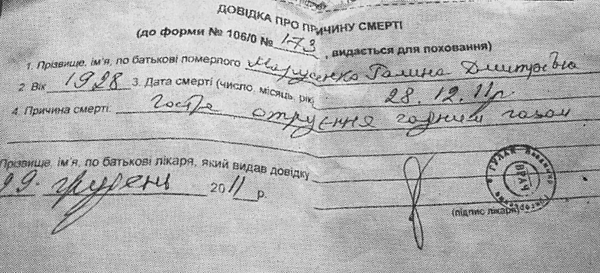 ДОВІДКА ПРО ПРИЧИНУ СМЕРТІ
(до форми № 106/0 № 173, видається для поховання)
1. Прізвище, ім'я, по батькові померлого Марусенко Галина Дмитрівна
2. Вік 1928 3. Дата смерті (число, місяць, рік) 28.12.11р.
4. Причина смерті: Гостре отруєння чадним газом
Прізвище, ім'я, по батькові лікаря, який видав довідку
29. грудень 2011 р.
(підпис лікаря)
ГУЛАЙ
ЛІКАР